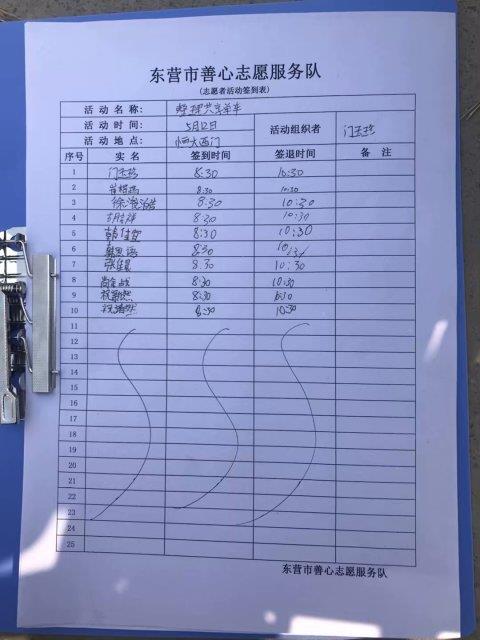 东营市善心志愿服务队
(志愿者活动签到表)
活动名称: 整理共享单车
活动时间: 5月12日 活动组织者 门玉珍
活动地点: 恒大西门
序号 实名 签到时间 签退时间 备注
1 门玉珍 8:30 10:30
2 8:30 10:30
3 徐浩 8:30 10:30
4 胡 8:30 10:30
5 韩佳 8:30 10:30
6 8:30
7 张佳 8:30 10:30
8 8:30 10:30
9 8:30
10 8:30 10:30
11
12
13
14
15
16
17
18
19
20
21
22
23
24
25
东营市善心志愿服务队